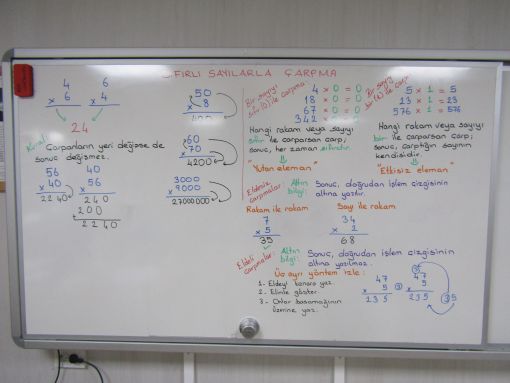 SIFIRLI SAYILARLA ÇARPMA
4 6
x 6 x 4
24
Kural:
Çarpanların yeri değişse de
sonuç değişmez.
56
x 40
2240
40
x 56
240
+ 200
2240
50
x 8
400
60
x 70
4200
3000
x 9000
27000000
Bir sayıyı
sıfır (0) ile çarpma
4 x 0 = 0
18 x 0 = 0
67 x 0 = 0
342
Hangi rakam veya sayıyı
sıfır ile çarparsan çarp;
sonuç, her zaman sıfırdır.
"Yutan eleman"
Bir sayıyı
bir (1) ile çarp
5 x 1 = 5
23 x 1 = 23
576 x 1 = 576
Hangi rakam veya sayıyı
bir ile çarparsan çarp;
sonuç, çarptığın sayının
kendisidir.
"Etkisiz eleman"
Eldesiz
çarpmalar:
Altın
bilgi:
Sonuç, doğrudan işlem çizgisinin
altına yazılır.
Rakam ile rakam
7
x 5
35
Sayı ile rakam
34
x 2
68
Eldeli
çarpmalar:
Altın
bilgi:
Sonuç, doğrudan işlem çizgisinin
altına yazılmaz.
Üç ayrı yöntem izle:
1- Eldeyi kenara yaz.
2- Elinle göster
3- Onlar basamağının
üzerine yaz.
47
x 5
235
3
47
x 5
235
35